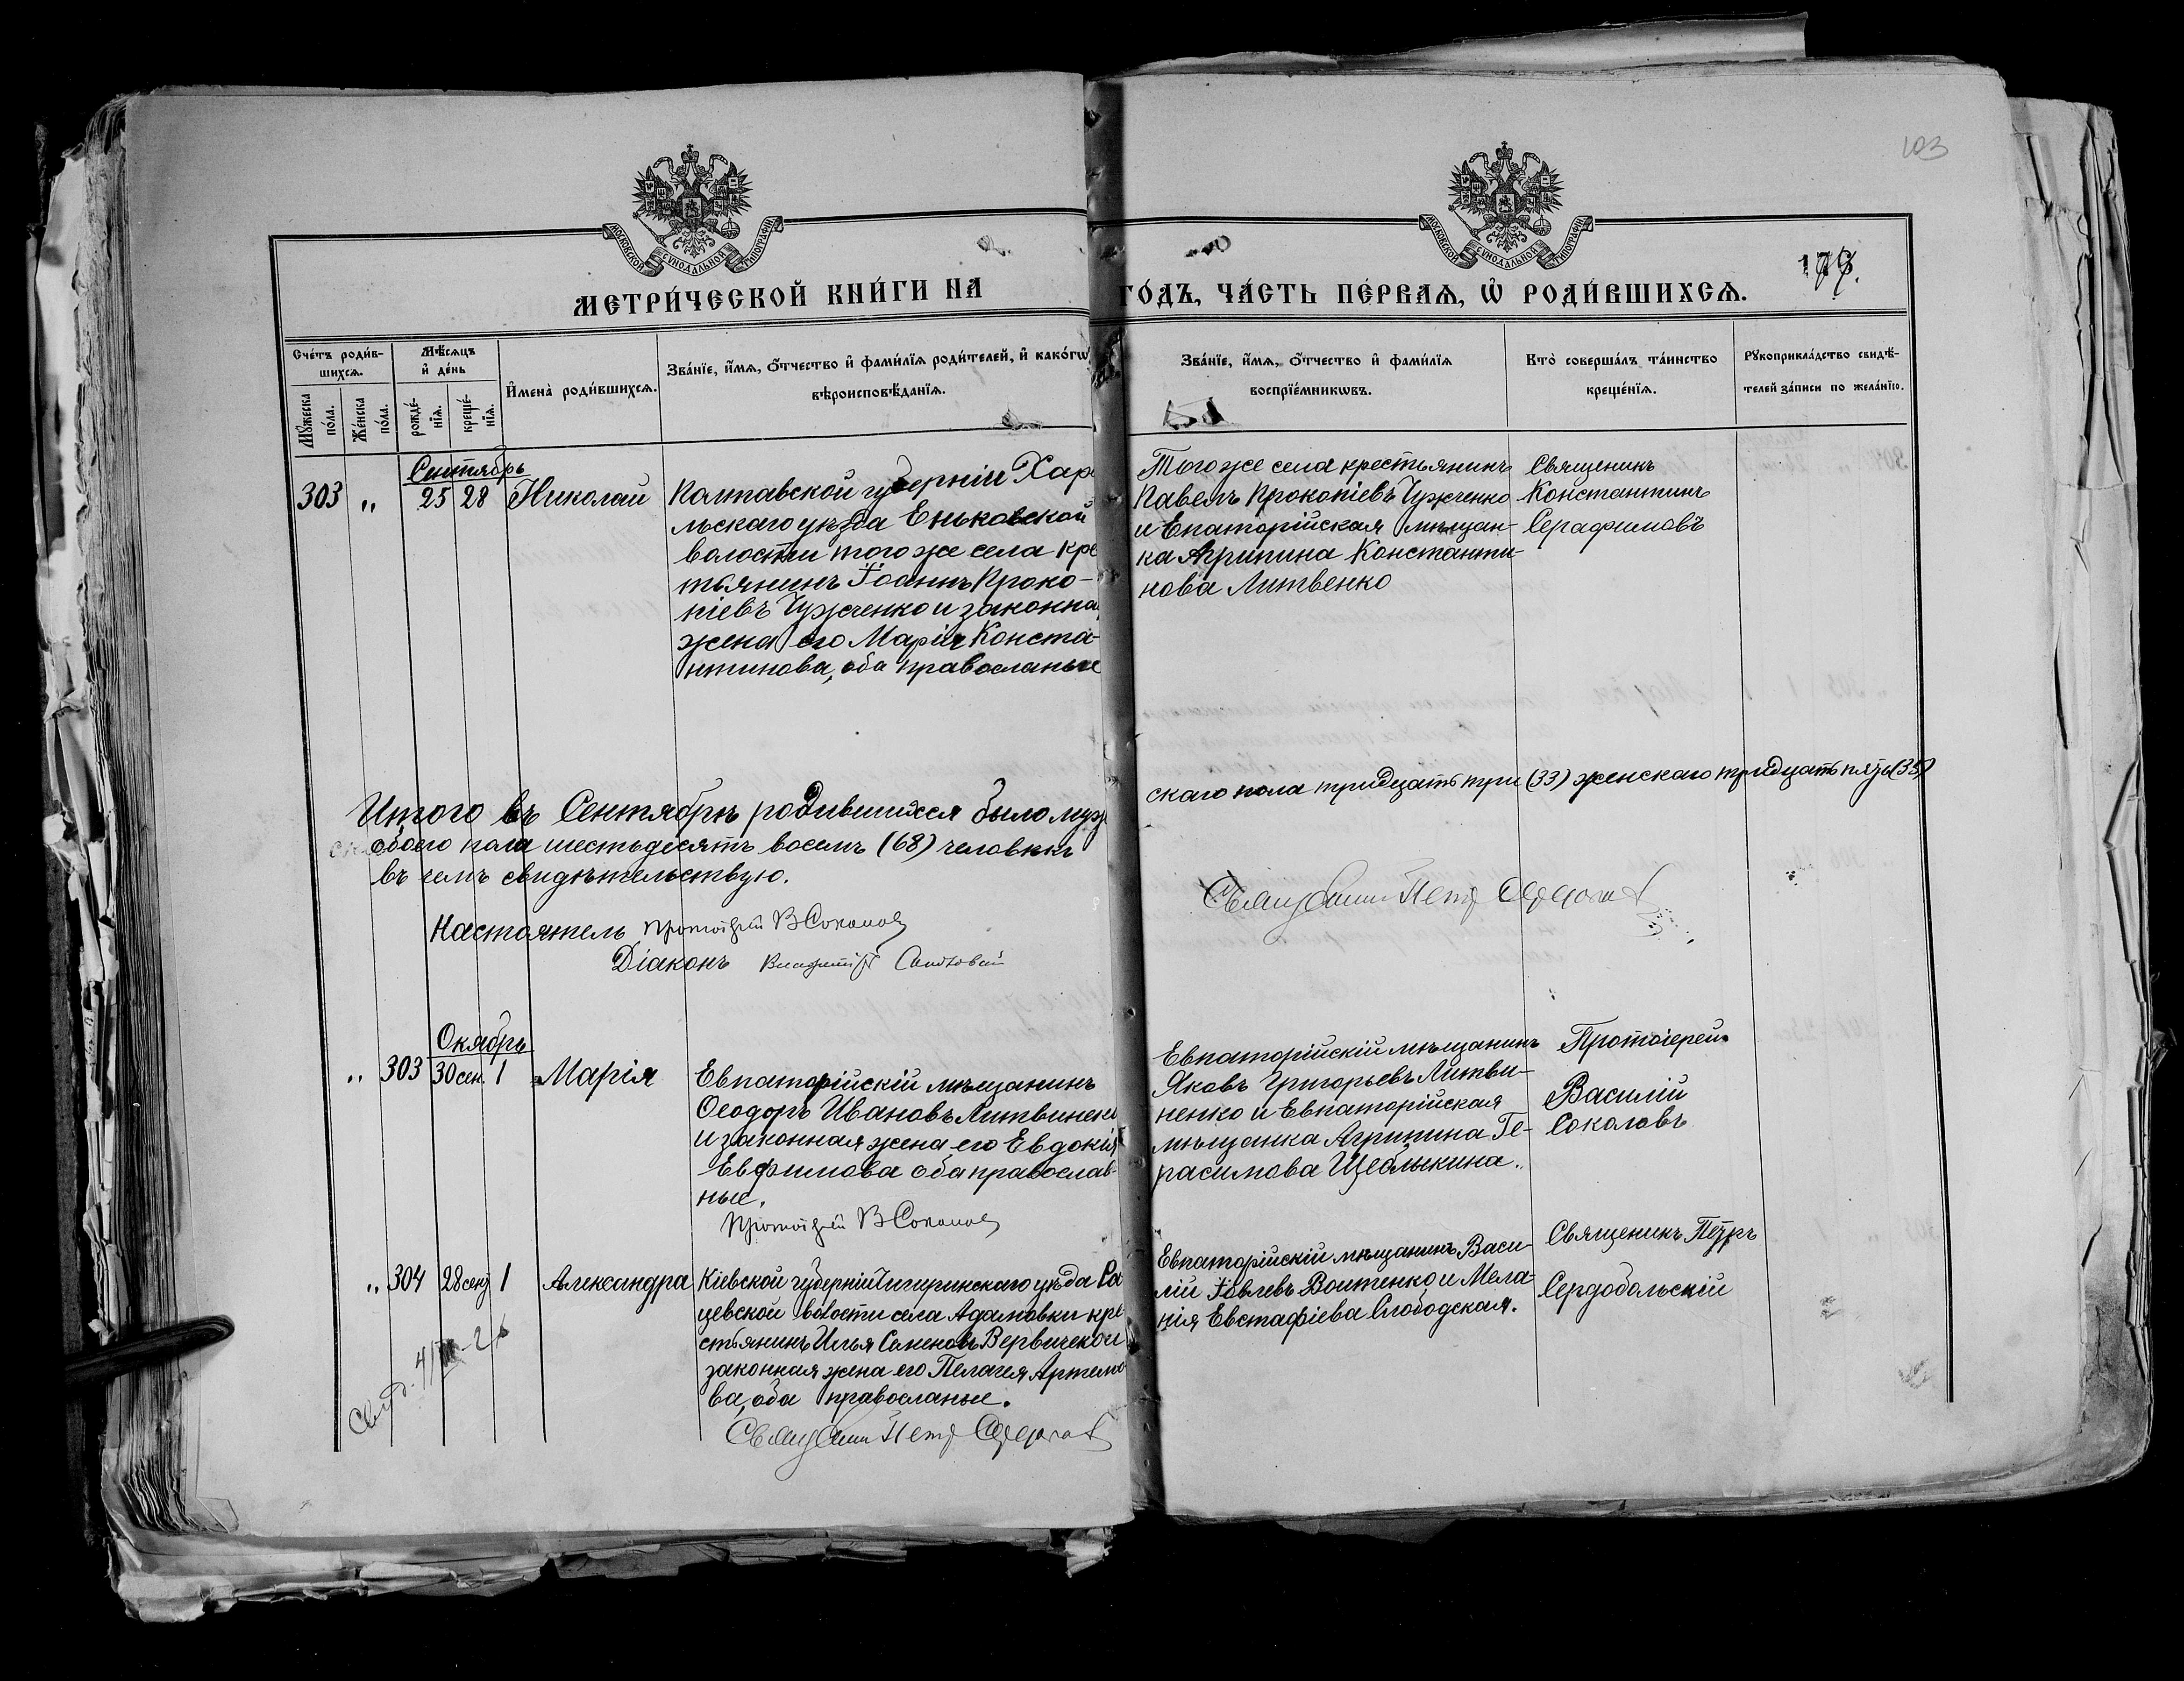 103
МОСКОВСКОЙ СѴНОДАЛЬНОЙ ТИПОГРАФІИ
МОСКОВСКОЙ СѴНОДАЛЬНОЙ ТИПОГРАФІИ
МЕТРИ́ЧЕСКОЙ КНИ́ГИ НА
ГО́ДЪ, ЧА́СТЬ ПЕ́РВАѦ, Ѡ҆ РОДИ́ВШИХСѦ.
Сче́тъ роди́вшихсѧ.
Мꙋ́жеска по́ла.
Же́нска по́ла.
Мѣ́сѧцъ и҆ де́нь
рожде́нїѧ.
креще́нїѧ.
И҆мена̀ роди́вшихсѧ.
Зва́нїе, и҆́мѧ, ѻ҆́тчество и҆ фами́лїѧ роди́телей, и҆ како́гѡ
вѣроисповѣ́данїѧ.
Зва́нїе, и҆́мѧ, ѻ҆́тчество и҆ фами́лїѧ
воспрїе́мникѡвъ.
Кто̀ соверша́лъ та́инство
креще́нїѧ.
Рꙋкоприкла́дство свидѣ́-
телей за́писи по жела́нїю.
Сентябрь
303 „ 25 28 Николай
Полтавской губерніи Хар
льскаго уѣзда Еньковской
волости того же села кре
тьянинъ Іоаннъ Проко-
піевъ Чужченко и законна
жена его Марія Конста-
нтинова, оба правосланые
Того же села крестьянинъ
Павелъ Прокопіевъ Чужченко
и Епаторійская мѣщан-
ка Агрипина Константи-
нова Литвенко
Священикъ
Константинъ
Серафимовъ
Итого въ Сентябрѣ родившихся было муж
скаго пола тридцать три (33) женскаго тридцать пять (35)
обоего пола шестьдесятъ восемъ (68) человѣкъ
въ чемъ свидѣтельствую.
Настоятель протоіерей В Соколов
Діаконъ
Священник Петр
Окябрь
„ 303 30 сен. 1 Марія
Евпаторійскій мѣщанинъ
Ѳеодоръ Ивановъ Литвинен
и законная жена его Евдокія
Евфимова оба православ-
ные.
протоіерей В Соколов
Евпаторійскій мѣщанинъ
Яковъ Григорьевъ Литви-
ненко и Евпаторійская
мѣщанка Агрипина Ге-
расимова Щеблыкина.
Протоіерей
Василій
Соколовъ
„ 304 28 сен 1 Александра
Кіевской губерній Чигиринскаго уѣзда Са
цевской волости села Адамовки кре
стьянинъ Илья Семеновъ Вервичекои
законная жена его Пелагея Артемо
ва, оба правосланые.
Священник Петр
Евпаторійскій мѣщанинъ Васи-
лій Іовлевъ Воитенко и Мела
нія Евстафіева Слободская.
Священикъ Петръ
Сердобольскій